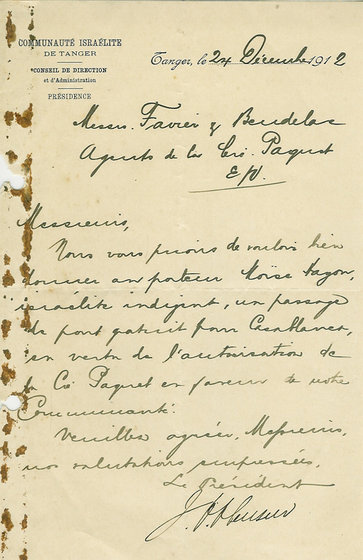 COMMUNAUTÉ ISRAÉLITE
DE TANGER
CONSEIL DE DIRECTION
et d'Administration
PRÉSIDENCE
Tanger, le 24 Décembre 1912
Messrs. Favier & Bendelac
Agents de la Cie. Paquet
E/V.
Messieurs,
Nous vous prions de vouloir bien
donner au porteur Moïse
israélite indigent, un passage
de pont gratuit pour Casablanca,
en vertu de l'autorisation de
la Cie Paquet en faveur de notre
Communauté.
Veuillez agréer, Messieurs,
nos salutations empressées.
Le Président